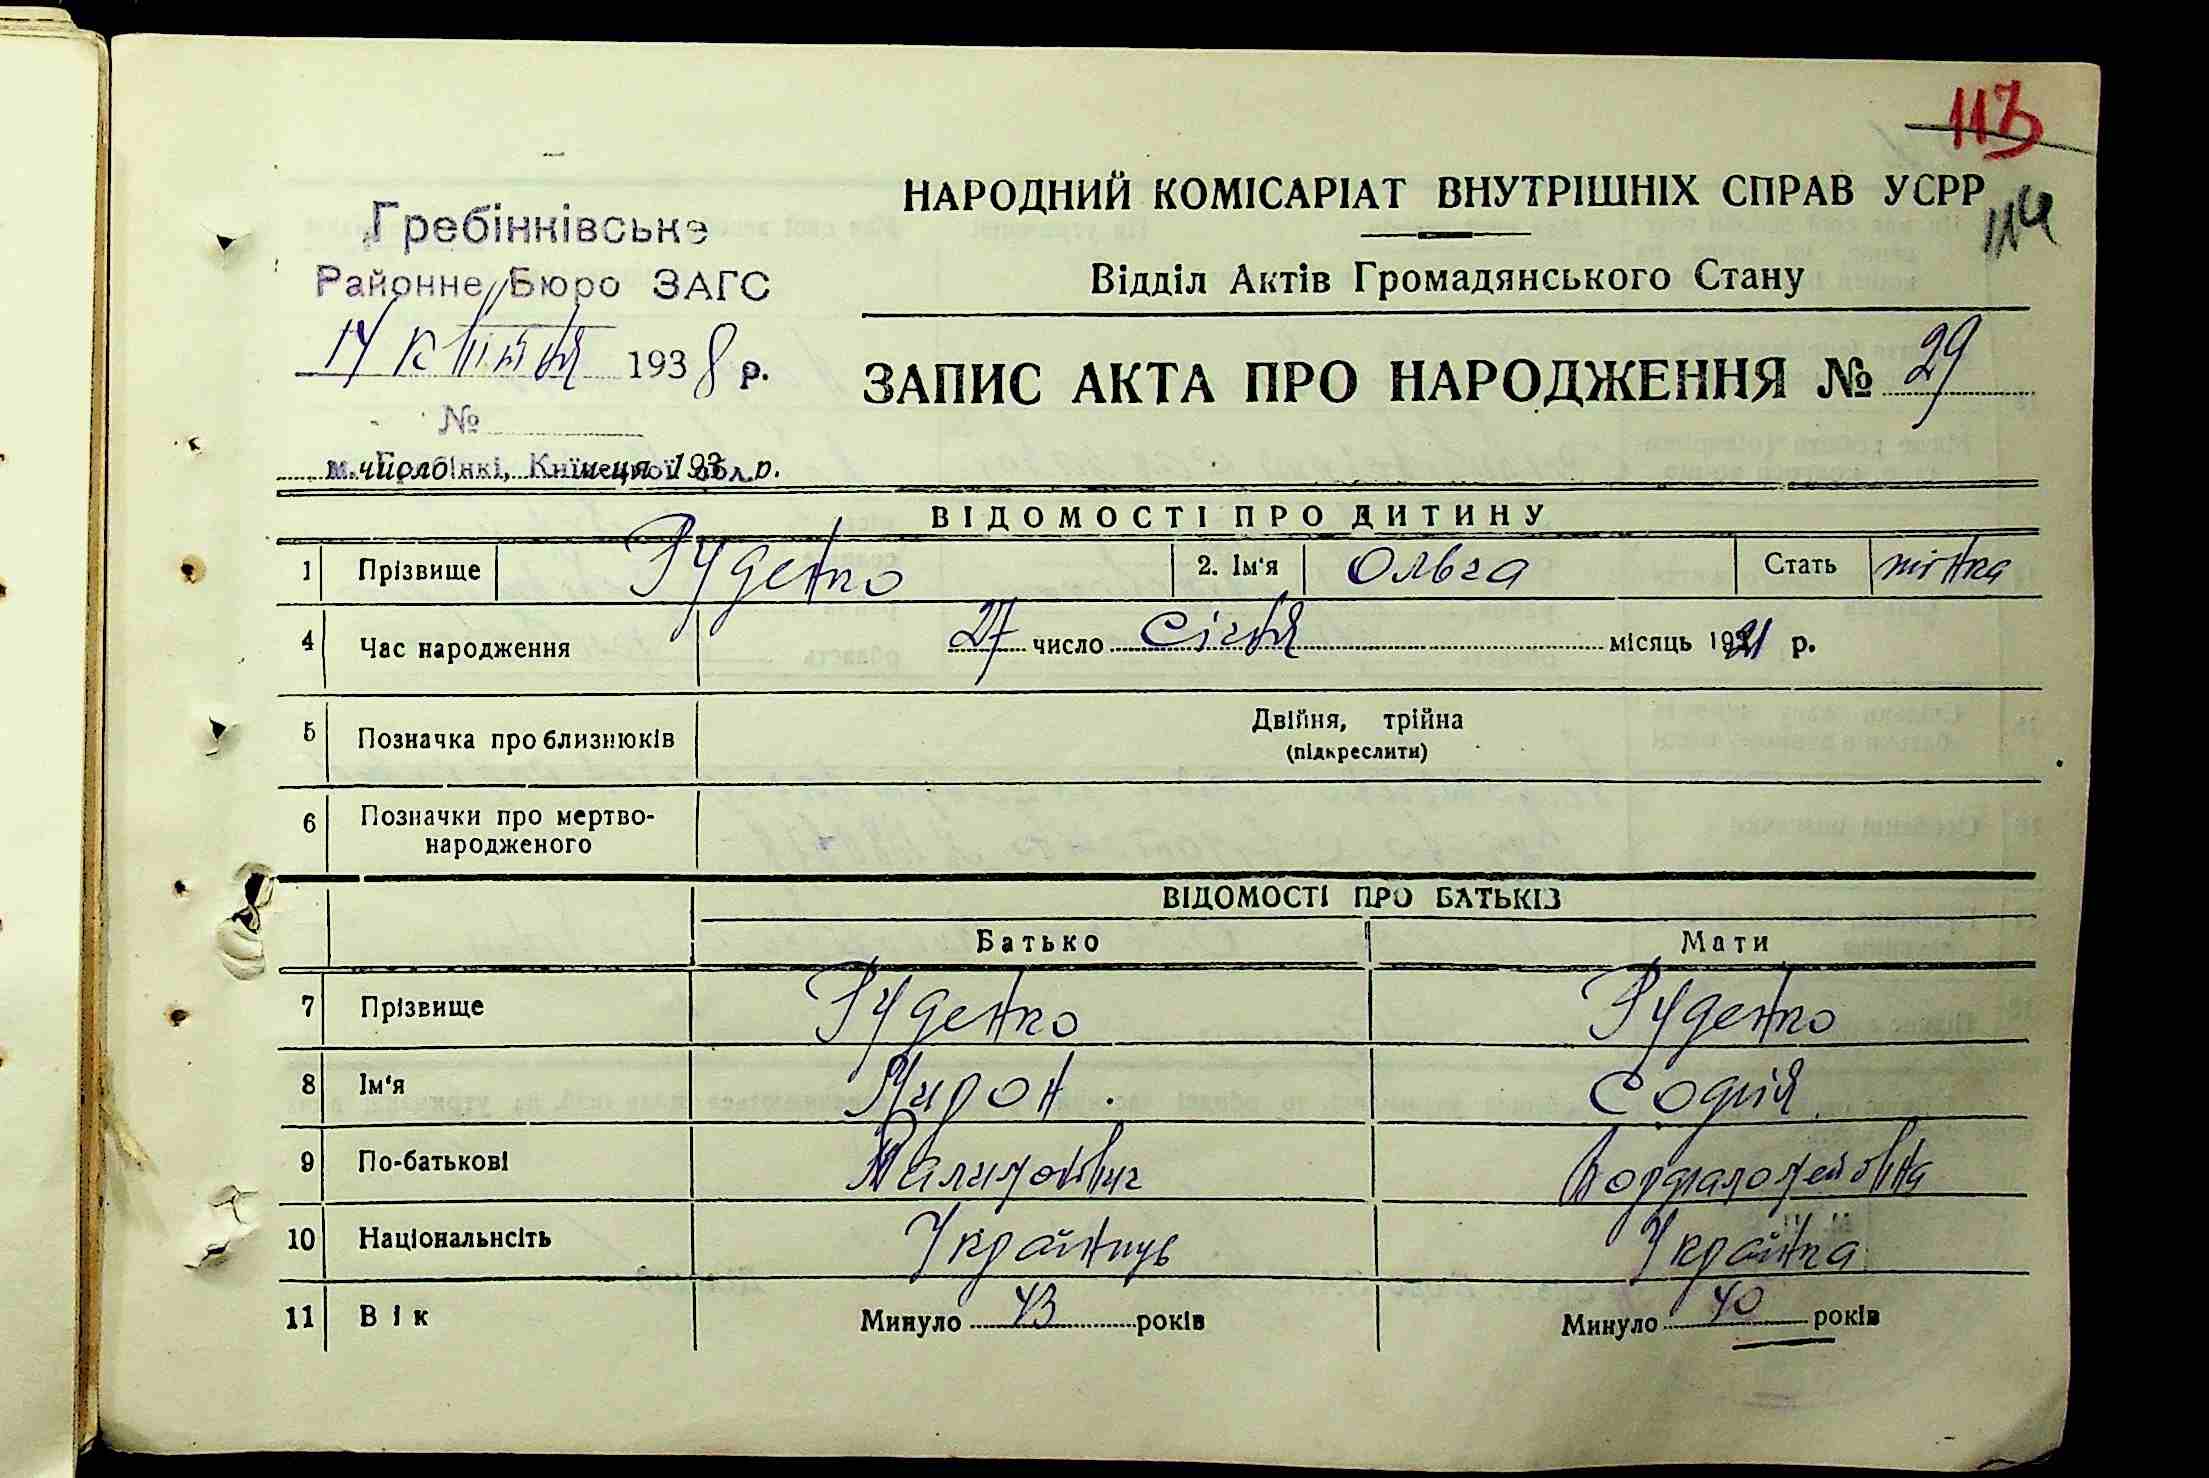 113
НАРОДНИЙ КОМІСАРІАТ ВНУТРІШНІХ СПРАВ УСРР
114
Гребінківське
Районне Бюро ЗАГС
Відділ Актів Громадянського Стану
14 квітня 1938 р.
ЗАПИС АКТА ПРО НАРОДЖЕННЯ № 29
№
м. Гребінкі, Київської обл.
число місяця 193 р.
ВІДОМОСТІ ПРО ДИТИНУ
1 Прізвище Руденко 2. Ім'я Ольга Стать жінка
4 Час народження 27 число Січня місяць 1921 р.
5 Позначка про близнюків Двійня, трійна
(підкреслити)
6 Позначки про мертво-
народженого
ВІДОМОСТІ ПРО БАТЬКІВ
Батько Мати
7 Прізвище Руденко Руденко
8 Ім'я Мирон. Софія
9 По-батькові Вартоломейовна
10 Національність Українць Українка
11 Вік Минуло 43 років Минуло 40 років